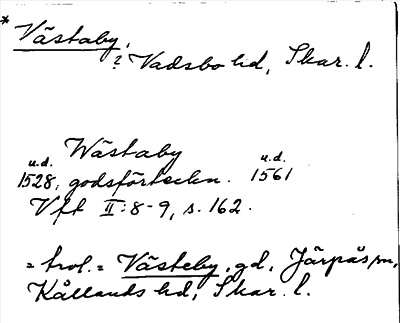 * Västaby,
? Vadsbo hd, Skar. l.
Wästaby
u.d. u.d.
1528, godsförteckn. 1561
Vft II:8-9, s. 162.
= trol. = Västeby, gd, Järpås sn,
Kållands hd, Skar. l.